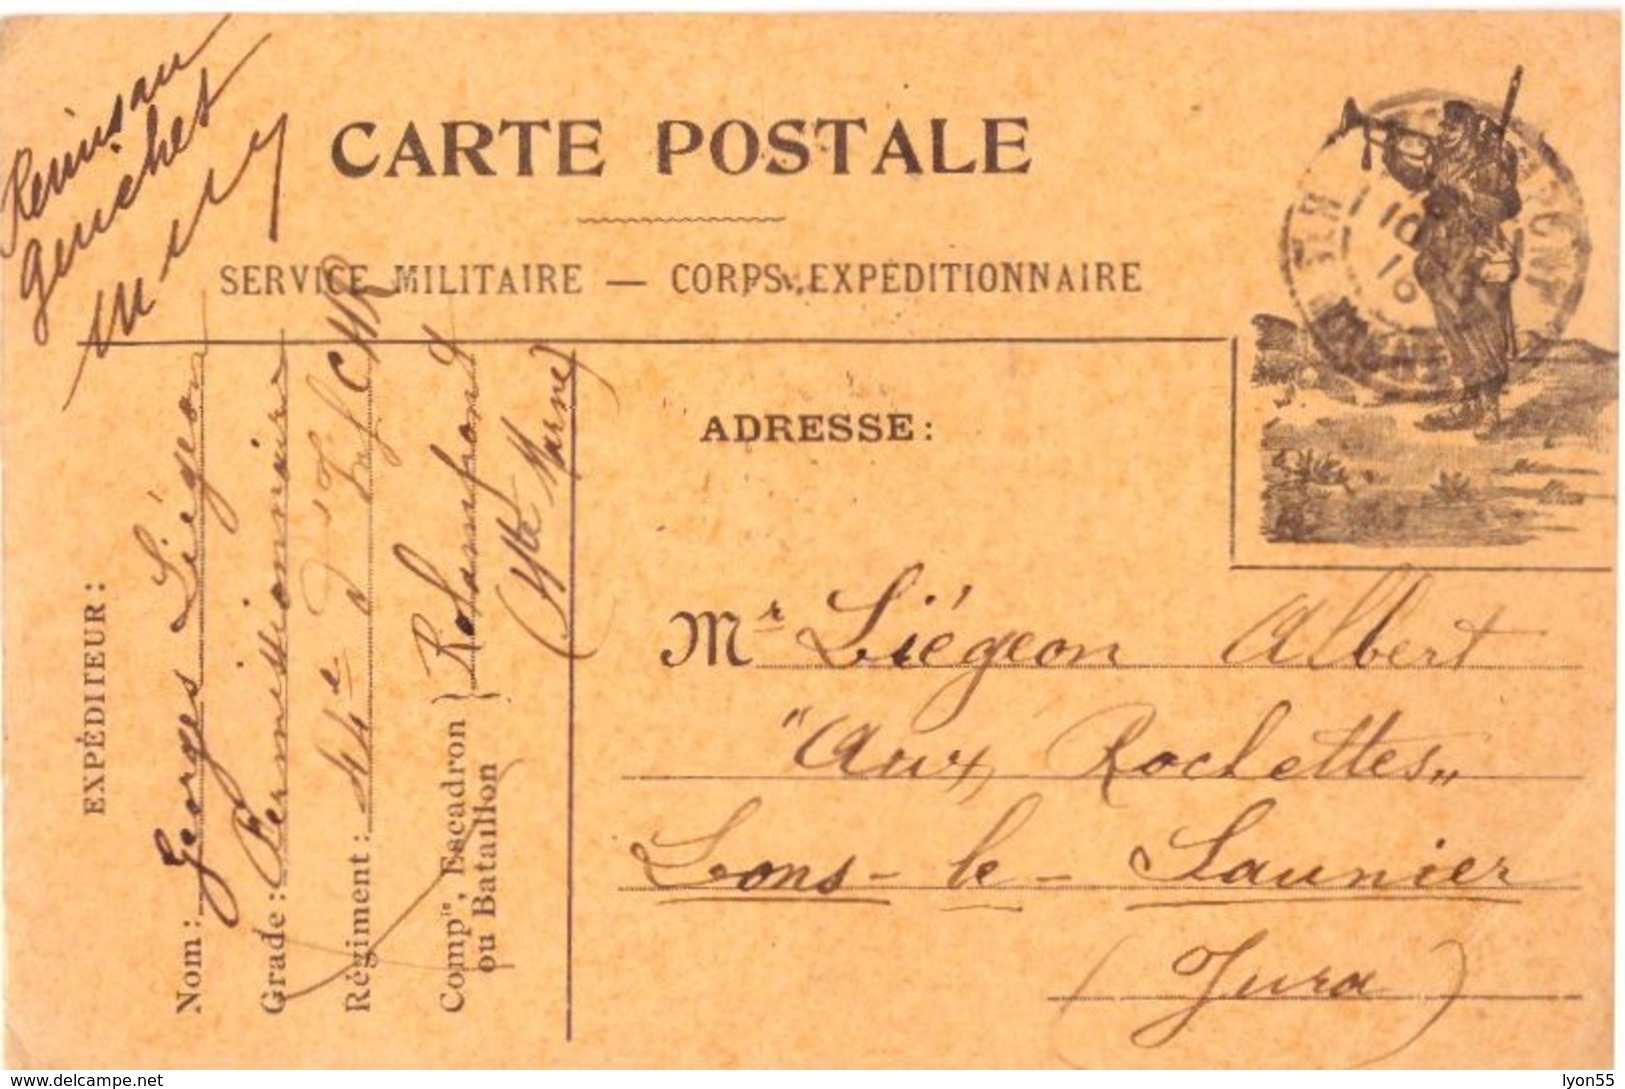 Remis au
guichet
CARTE POSTALE
SERVICE MILITAIRE — CORPS EXPÉDITIONNAIRE
EXPÉDITEUR :
Nom : Georges Liégeon
Grade : Permissionnaire
Régiment : 44e d'Inf
Compie, Escadron
ou Bataillon
Rolampont
(Hte Marne)
ADRESSE :
Mr Liégeon Albert
"Aux Rochettes"
Lons-le-Saunier
(Jura)
www.delcampe.net
lyon55